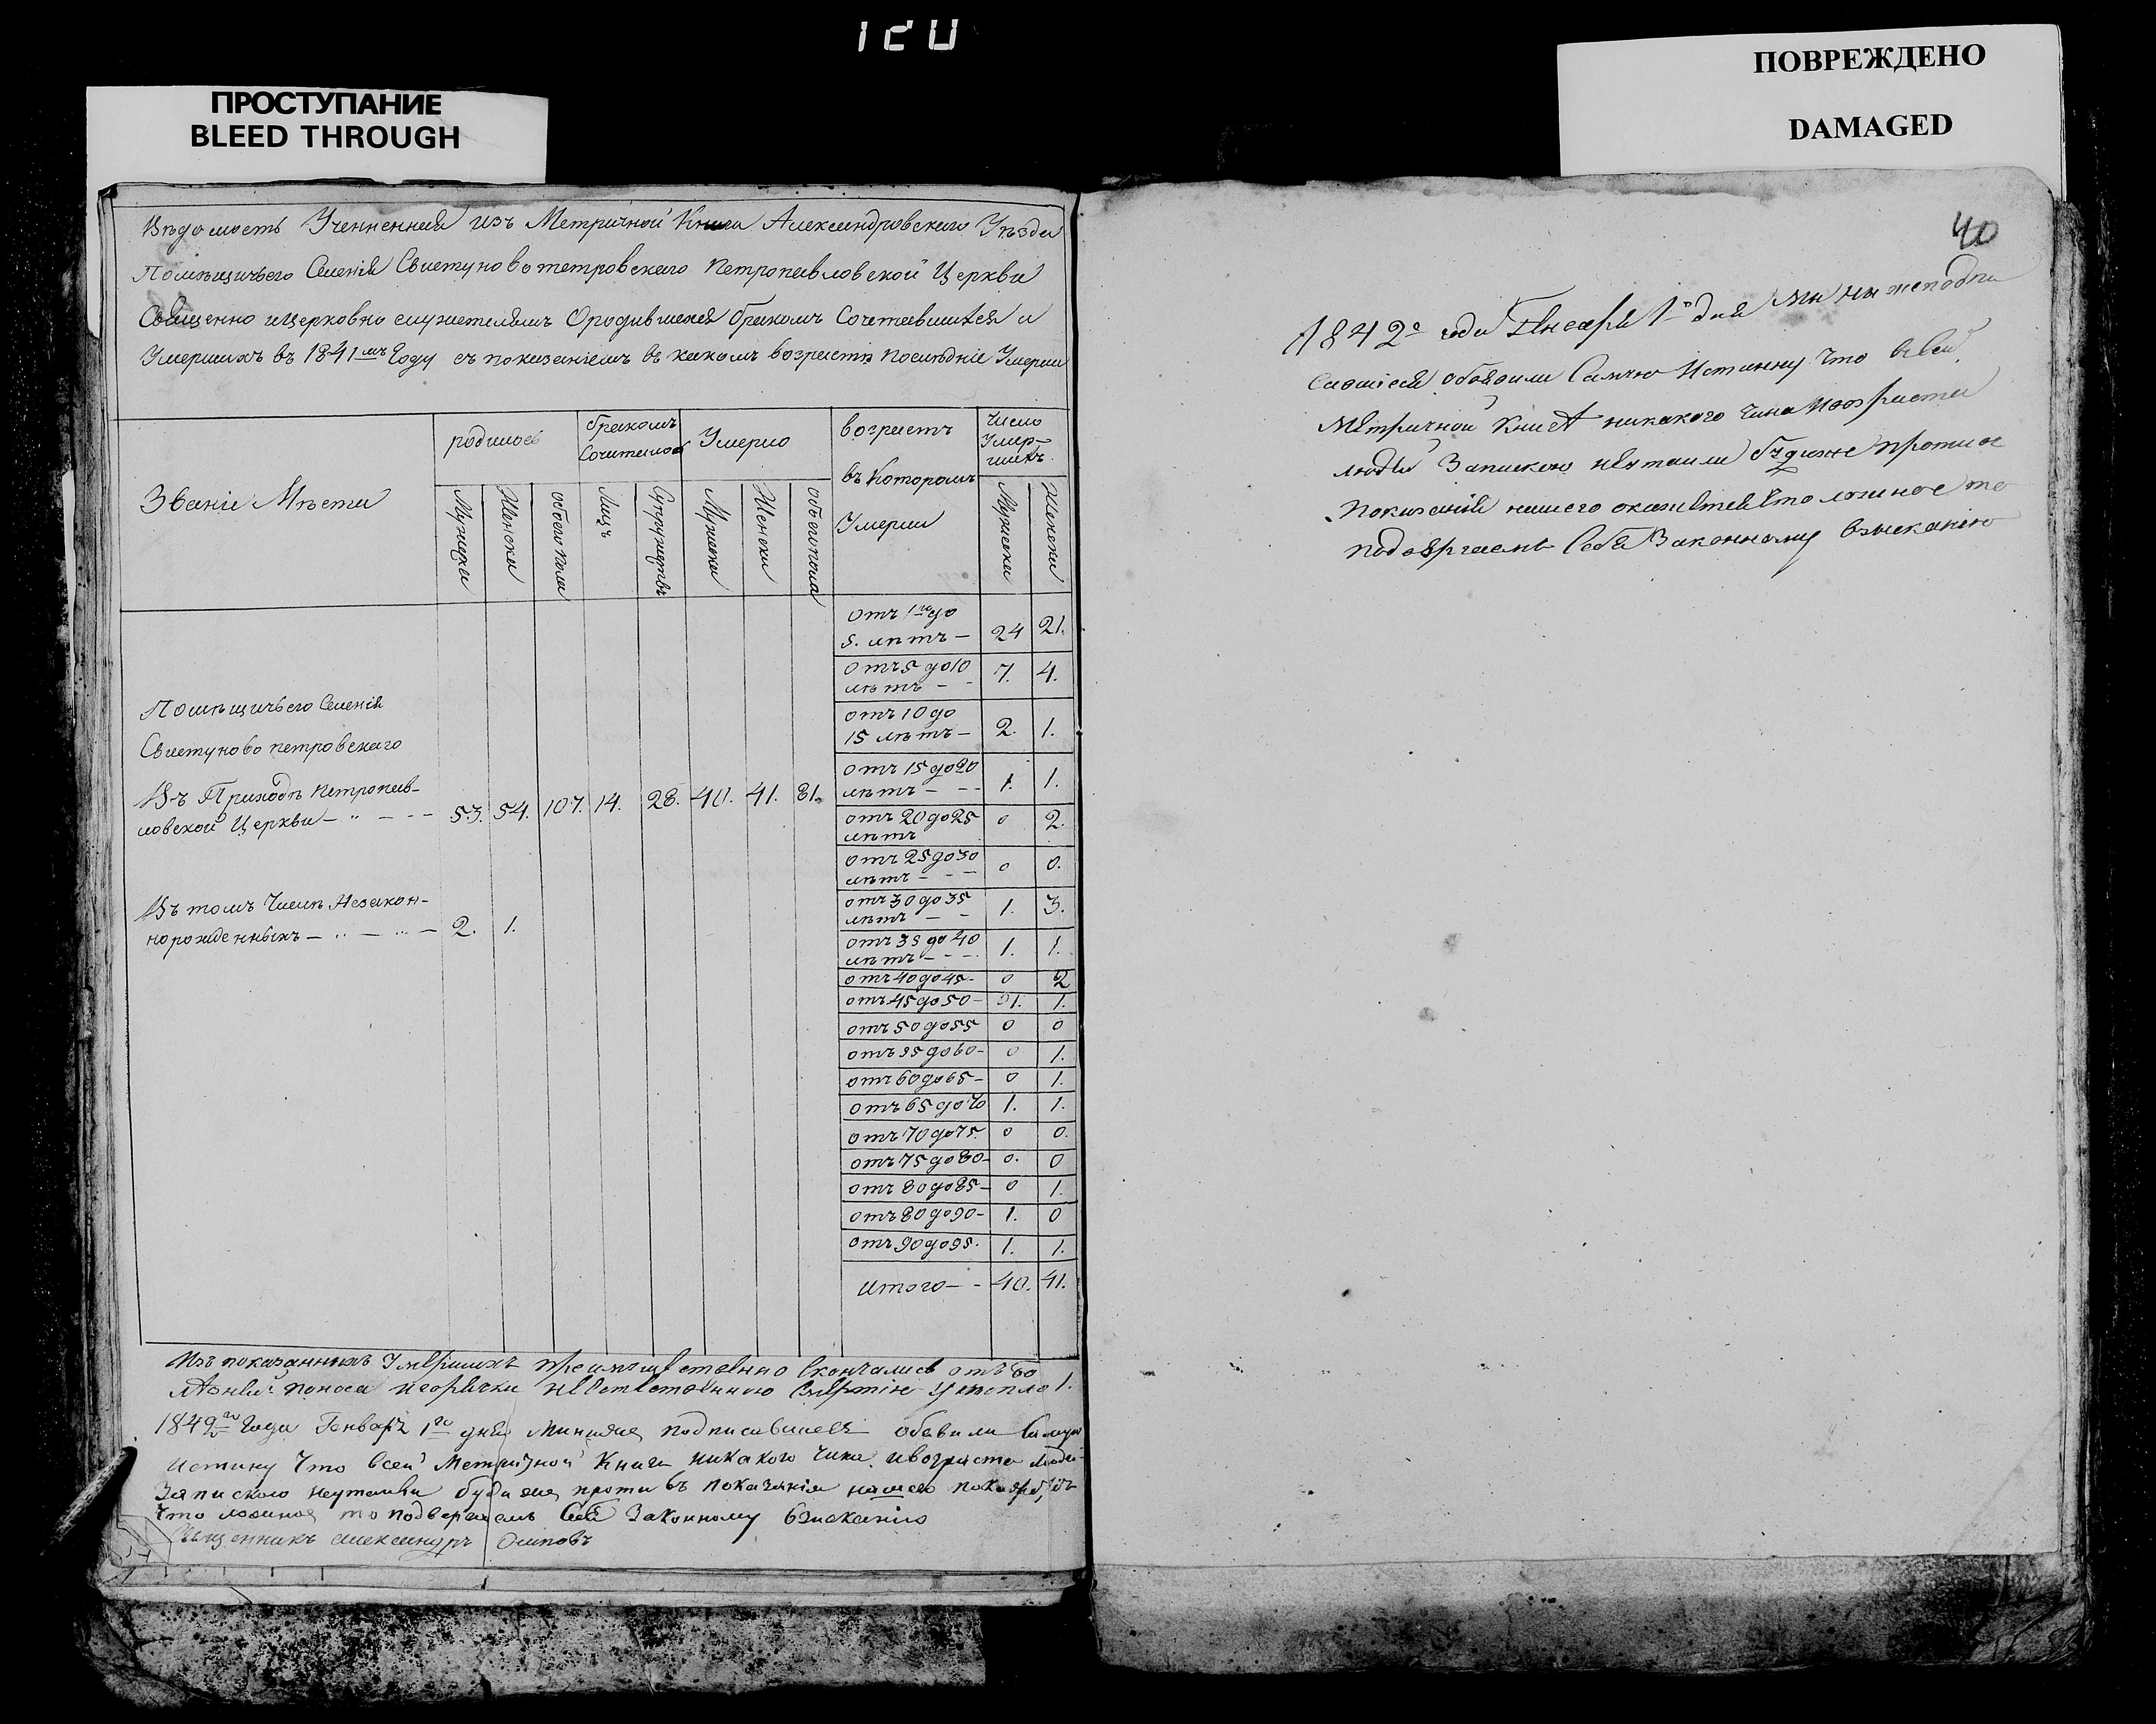 120
ПРОСТУПАНИЕ
BLEED THROUGH
ПОВРЕЖДЕНО
DAMAGED
Вѣдомость Учененная изъ Метричной Книги Александровского Уѣзда
Помѣщичьего Селенія Свистуново петровскаго Петропавловской Церкви
Священно ицерковно служителямъ Ородившихся бракомъ Сочетавшихся и
Умершихъ въ 1841мъ Году съ показаніемъ въ какомъ возрастѣ последніе Умерли
Званіе Мѣста
родилось
бракомъ Сочеталось
Умерло
возрастъ въ Которомъ Умерли
Число Умершихъ
Мужска
Женска
обоего пола
Лицъ
Супружествъ
Мужска
Женска
обоего пола
Мужска
Женска
отъ 1го до
5. лѣтъ — 24 21.
отъ 5 до 10
лѣтъ - - 7. 4.
Помѣщичьего Селенія
отъ 10 до
15 лѣтъ — 2. 1.
Свистуново петровскаго
отъ 15 до 20
лѣтъ - - - 1. 1.
Въ Приходѣ Петропав-
ловской Церкви — 53. 54. 107. 14. 28. 40. 41. 81.
отъ 20 до 25
лѣтъ 0 2.
отъ 25 до 30
лѣтъ - - - 0 0.
Въ томъ Числѣ Незакон-
норожденныхъ — 2. 1.
отъ 30 до 35
лѣтъ - - 1. 3.
отъ 35 до 40
лѣтъ - - - 1. 1.
отъ 40 до 45 - 0 2
отъ 45 до 50 - 1. 1.
отъ 50 до 55 0 0
отъ 55 до 60 - 0 1.
отъ 60 до 65 - 0 1.
отъ 65 до 70 1. 1.
отъ 70 до 75. 0 0.
отъ 75 до 80 - 0. 0
отъ 80 до 85 - 0 1.
отъ 80 до 90 - 1. 0
отъ 90 до 95. 1. 1.
итого — - 40. 41.
Изъ показанныхъ Умершихъ преимущественно Скончались отъ бо
лѣзни поноса игорячки неестественною Смертію утопло 1.
1842го Года Генваря 1го дня Мыниже подписавшеся обявили Самую
истину Что всей Метричной Книги никакого Чина ивозраста людей
Запискою неутаили буде же противъ показанія нашего
Что ложное то подвергаемъ Себя Законному взисканію
Священникъ Александръ Осиповъ
40
1842о года Генваря 1о дня мы нижеподпи
савшіеся обявили Самую Истинну Что всей
Метричной Книгѣ никакого Чина ивозраста
людей Запискою неутаили будеже противъ
показанія нашего окажется Что ложное то
подвергаемъ Себя Законному взысканію